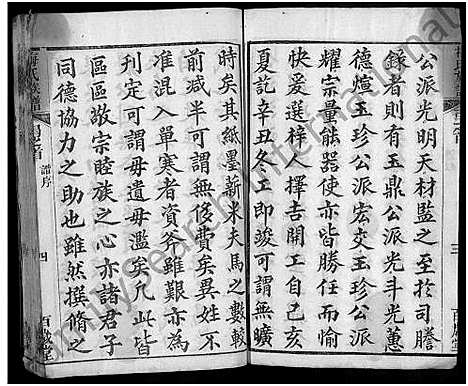 公派光明天材監之至於司謄
錄者則有玉鼎公派光斗光蕙
德煊玉珍公派宏交玉玠公派
耀宗量能器使亦皆勝任而愉
快爰選梓人擇吉開工自己亥
夏訖辛丑工即竣可謂無曠
時矣其紙墨薪米夫馬之數較
前增倍可謂無侈費矣異姓不
准混入單寒者資斧雖艱亦為
刊定可謂毋遺毋濫矣凡此皆
區區敬宗睦族之心亦諸君子
同德協力之助也雖然撰脩之
譜序
四
三